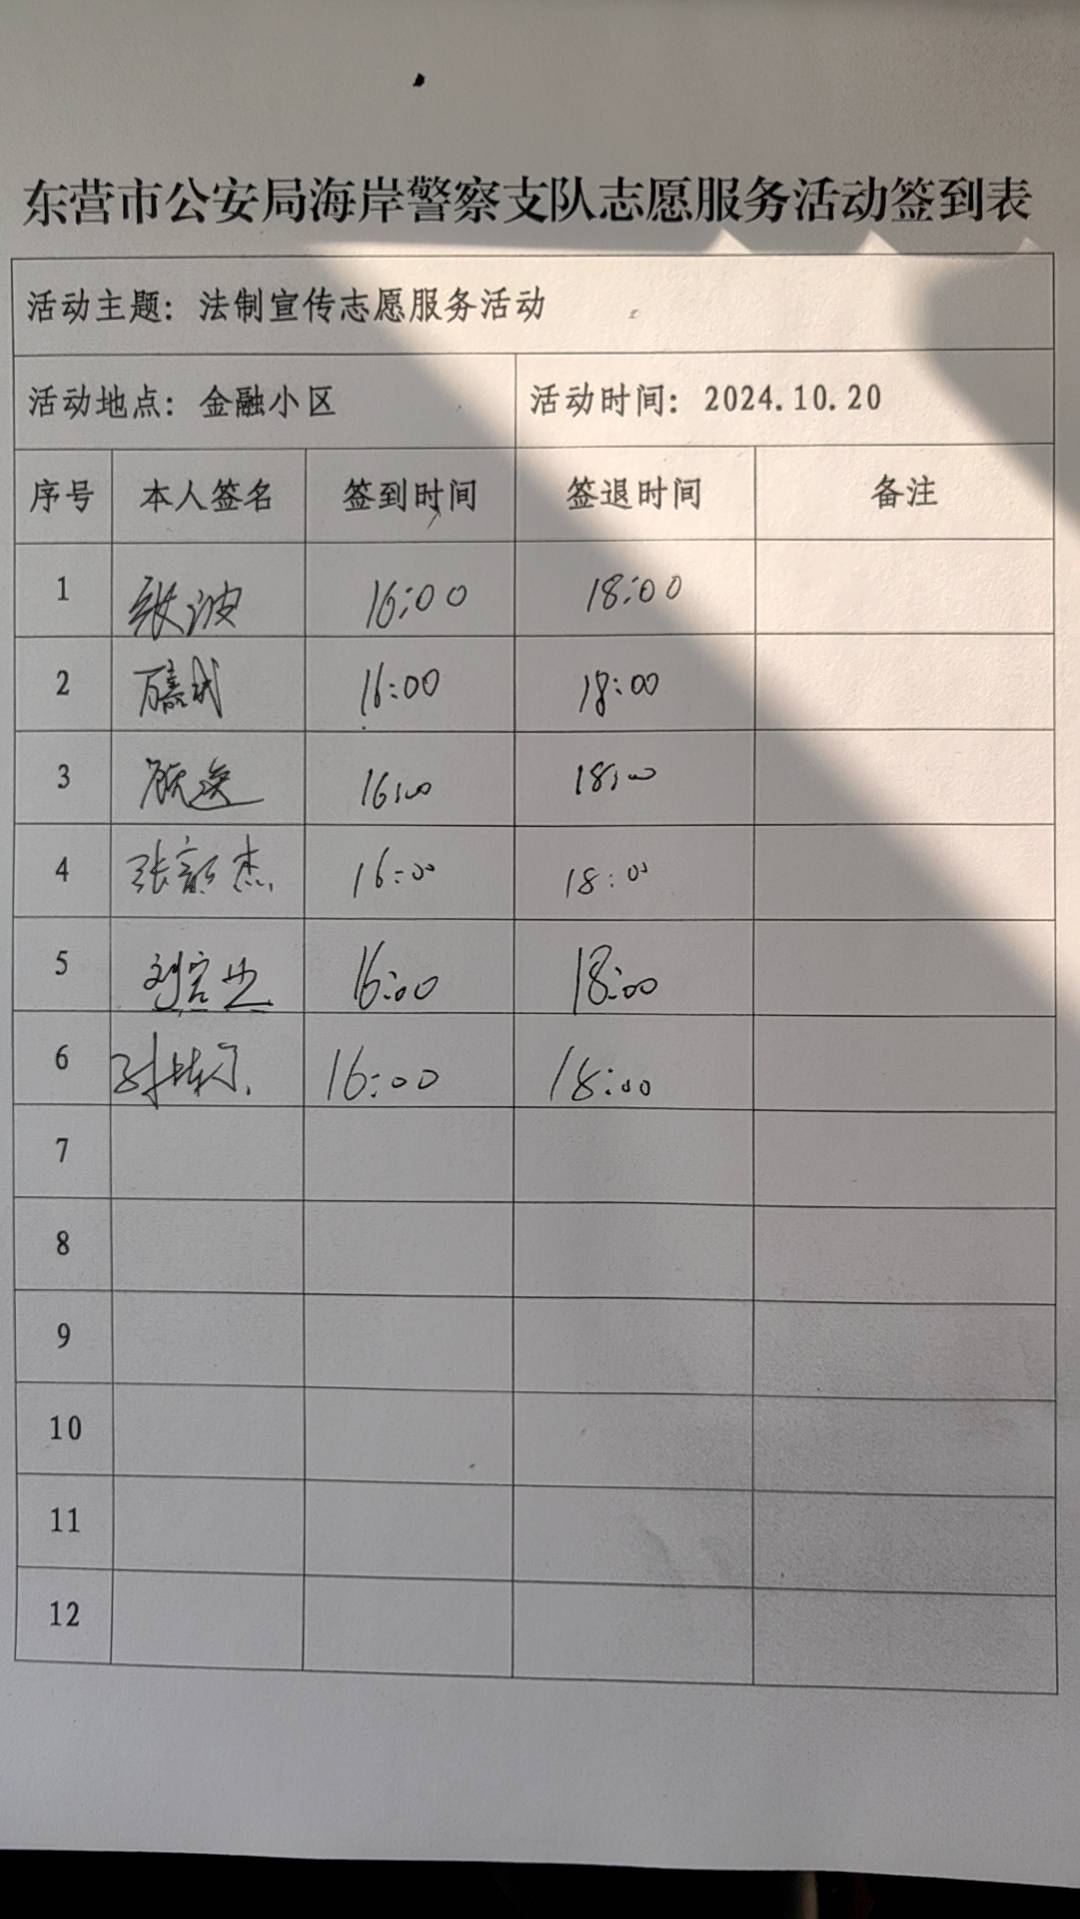 东营市公安局海岸警察支队志愿服务活动签到表
活动主题：法制宣传志愿服务活动
活动地点：金融小区 活动时间：2024.10.20
序号 本人签名 签到时间 签退时间 备注
1 张波 16:00 18:00
2 16:00 18:00
3 16:00 18:00
4 张 杰 16:00 18:00
5 刘 16:00 18:00
6 16:00 18:00
7
8
9
10
11
12